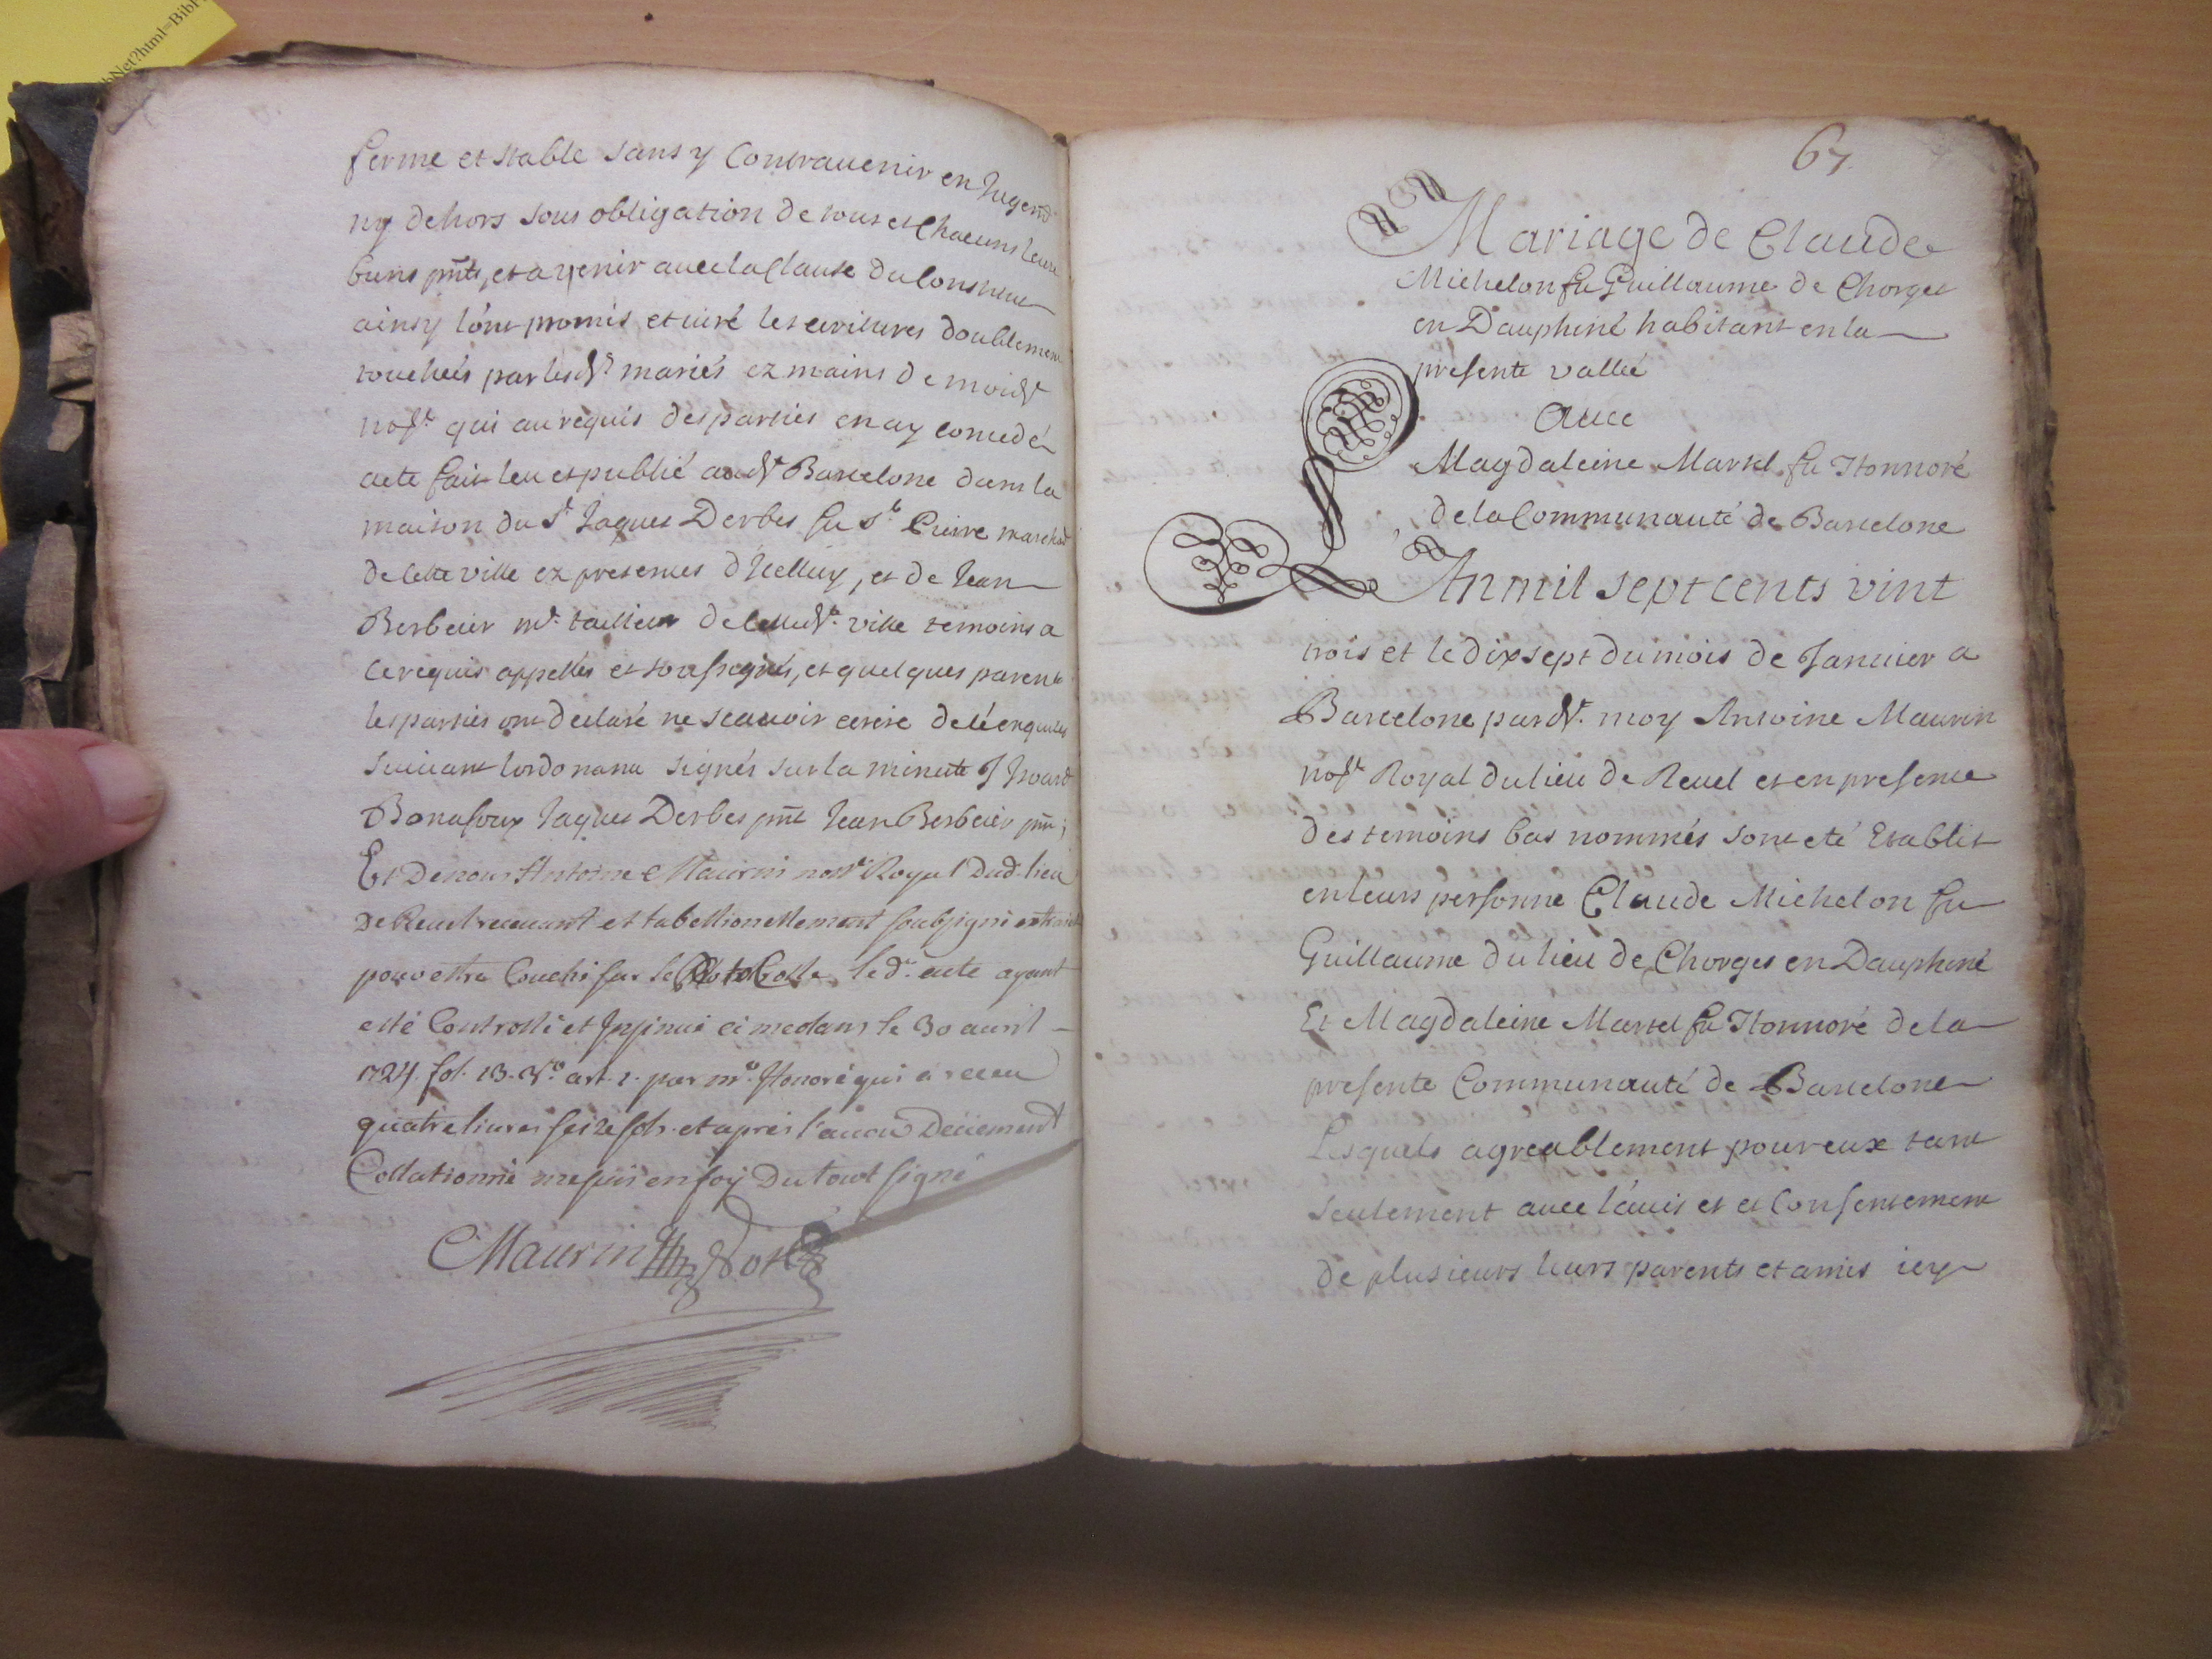 bNet?html=Bibl
ferme et stable sans y Contrauenir en Jugemt
ny dehors sous obligation de tous et Chacuns leurs
biens pnts, et a venir auec la Clause du Constitut
ainsy l'ont promis et juré les ecritures doublement
touchées par lesdt mariés ez mains de moidt
nott qui au requis des parties en ay concedé
acte fait leu et publié audt Barcelone dans la
maison du Sr Jaques Derbes fu Sr Pierre marchd
de cette ville ez presences d'Icelluy, et de Jean
Berbeier mr tailleur de cettedt ville temoins a
ce requis appellés et soussignés, et quelques parents
les parties ont declaré ne scauoir ecrire de ce enquises
suiuant lordonance signés sur la minute J Jsoard
Bonafoux Jaques Derbes pnt Jean Berbeier pnt;
Et De nous Antoine Maurin nore Royal Dud. lieu
De Reuel receuant et tabellionellement soubsigné
pour estre Couché sur le Protocolle, led. acte ayant
esté Controllé et Insinué ci medans le 30 auril
1724. fol. 13. Vo. art. 2. par mr. Honoré qui a receu
quatre liures seise sols. et apres l'auoir Deüement
Collationné me suis en foy Du tout signé
Maurin Nore
67.
Mariage de Claude
Michelon fu Guillaume de Chorges
en Dauphiné habitant en la
presente vallée
auec
Magdaleine Martel fu Honnoré
de la Communauté de Barcelone
L'An mil sept cents vint
trois et le dix sept du mois de Januier a
Barcelone pardt. moy Antoine Maurin
nott Royal du lieu de Reuel et en presence
des temoins bas nommés sont eté Etablis
en leurs personne Claude Michelon fu
Guillaume du lieu de Chorges en Dauphiné
Et Magdaleine Martel fu Honnoré de la
presente Communauté de Barcelone
Lesquels agreablement pour eux tant
seulement auec l'auis et et Consentement
de plusieurs leurs parents et amis icy